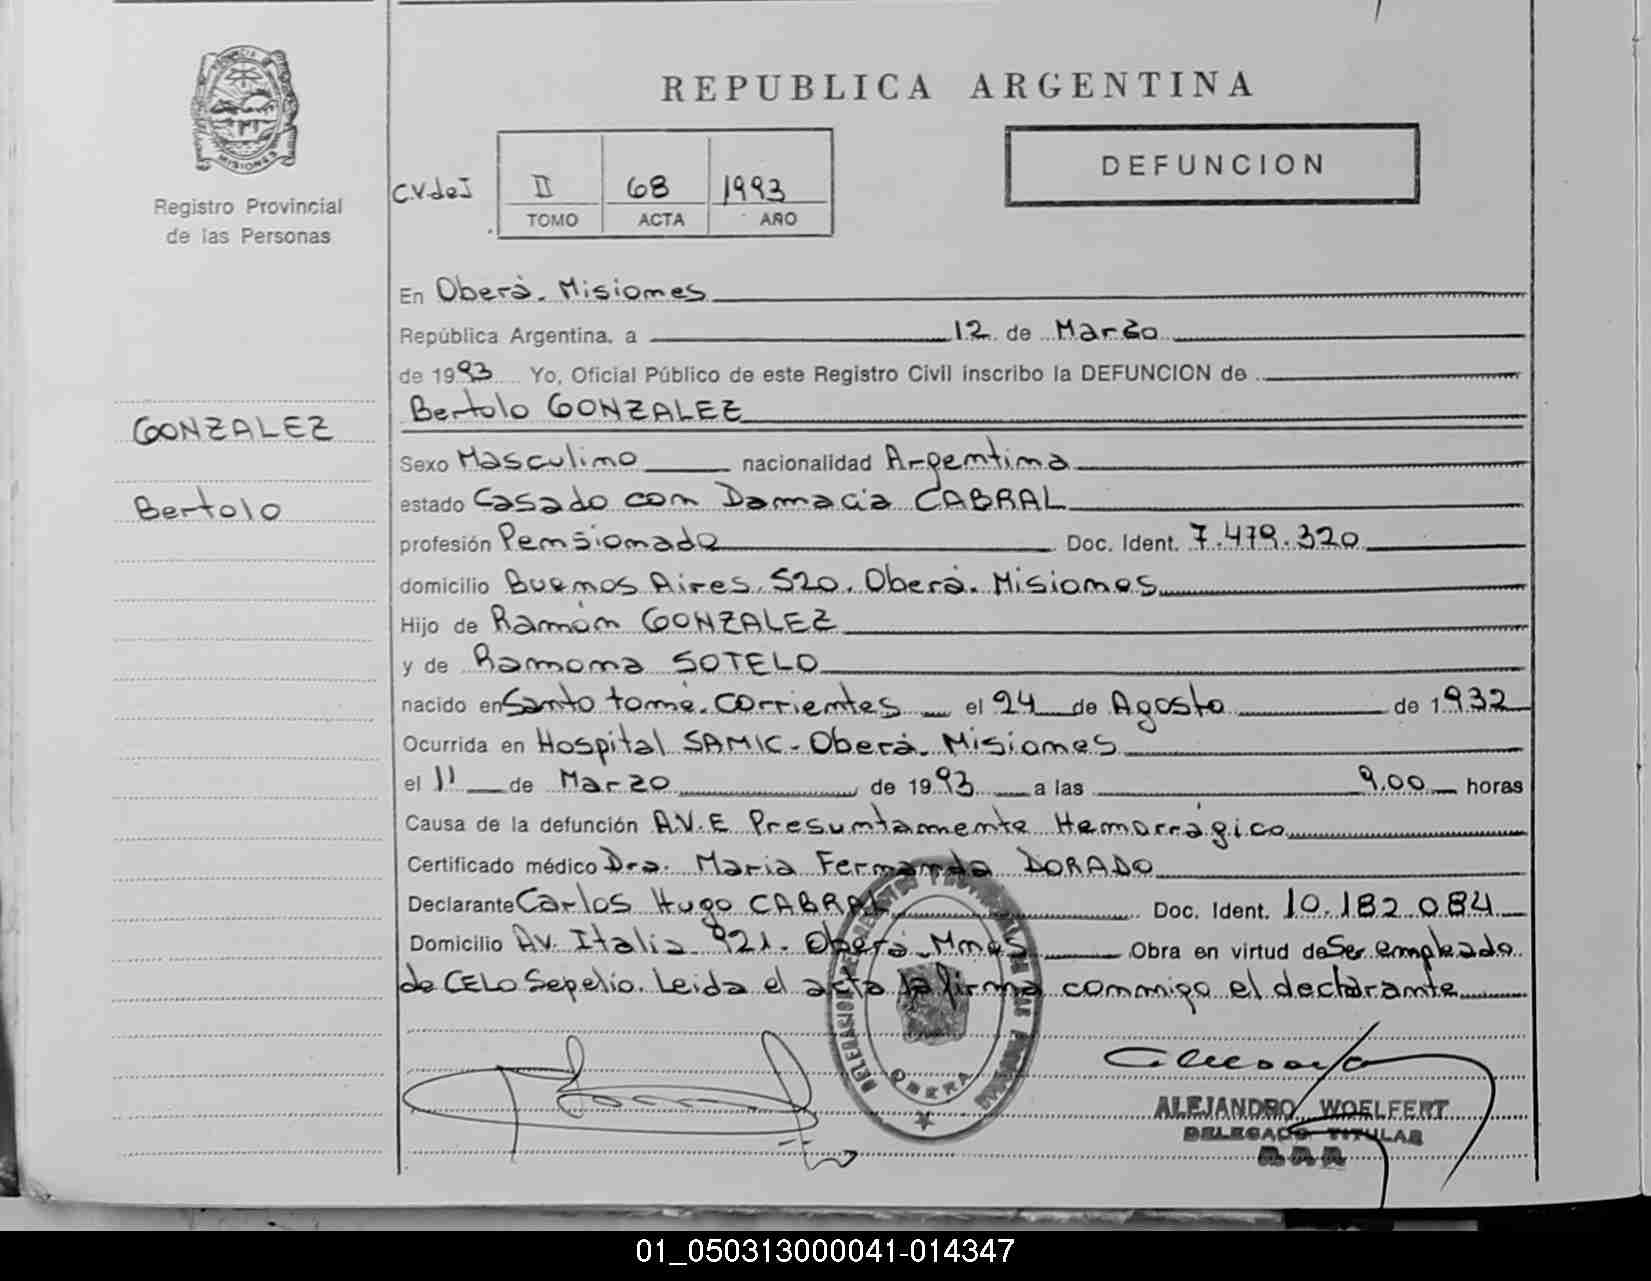 PROVINCIA DE
MISIONES
Registro Provincial
de las Personas
GONZALEZ
Bertolo
REPUBLICA ARGENTINA
C.V.deI II 68 1993
TOMO ACTA AÑO
DEFUNCION
En Oberà. Misiones
República Argentina, a 12 de Marzo
de 1993 Yo, Oficial Público de este Registro Civil inscribo la DEFUNCION de
Bertolo GONZALEZ
Sexo Masculino nacionalidad Argentina
estado Casado con Damacia CABRAL
profesión Pensionado Doc. Ident. 7.479.320
domicilio Buenos Aires 520. Oberà. Misiones
Hijo de Ramón GONZALEZ
y de Ramona SOTELO
nacido en Santo tomé. Corrientes el 24 de Agosto de 1932
Ocurrida en Hospital SAMIC - Oberà. Misiones
el 11 de Marzo de 1993 a las 9.00 horas
Causa de la defunción A.V.E Presuntamente Hemorràgico
Certificado médico Dra. Maria Fernanda DORADO
Declarante Carlos Hugo CABRAL Doc. Ident. 10.182.084
Domicilio Av. Italia 921. Oberà. Mnes Obra en virtud de Ser empleado
de CELO Sepelio. Leida el acta la firma conmigo el declarante
OBERA
ALEJANDRO WOELFERT
DELEGADO TITULAR
01_050313000041-014347